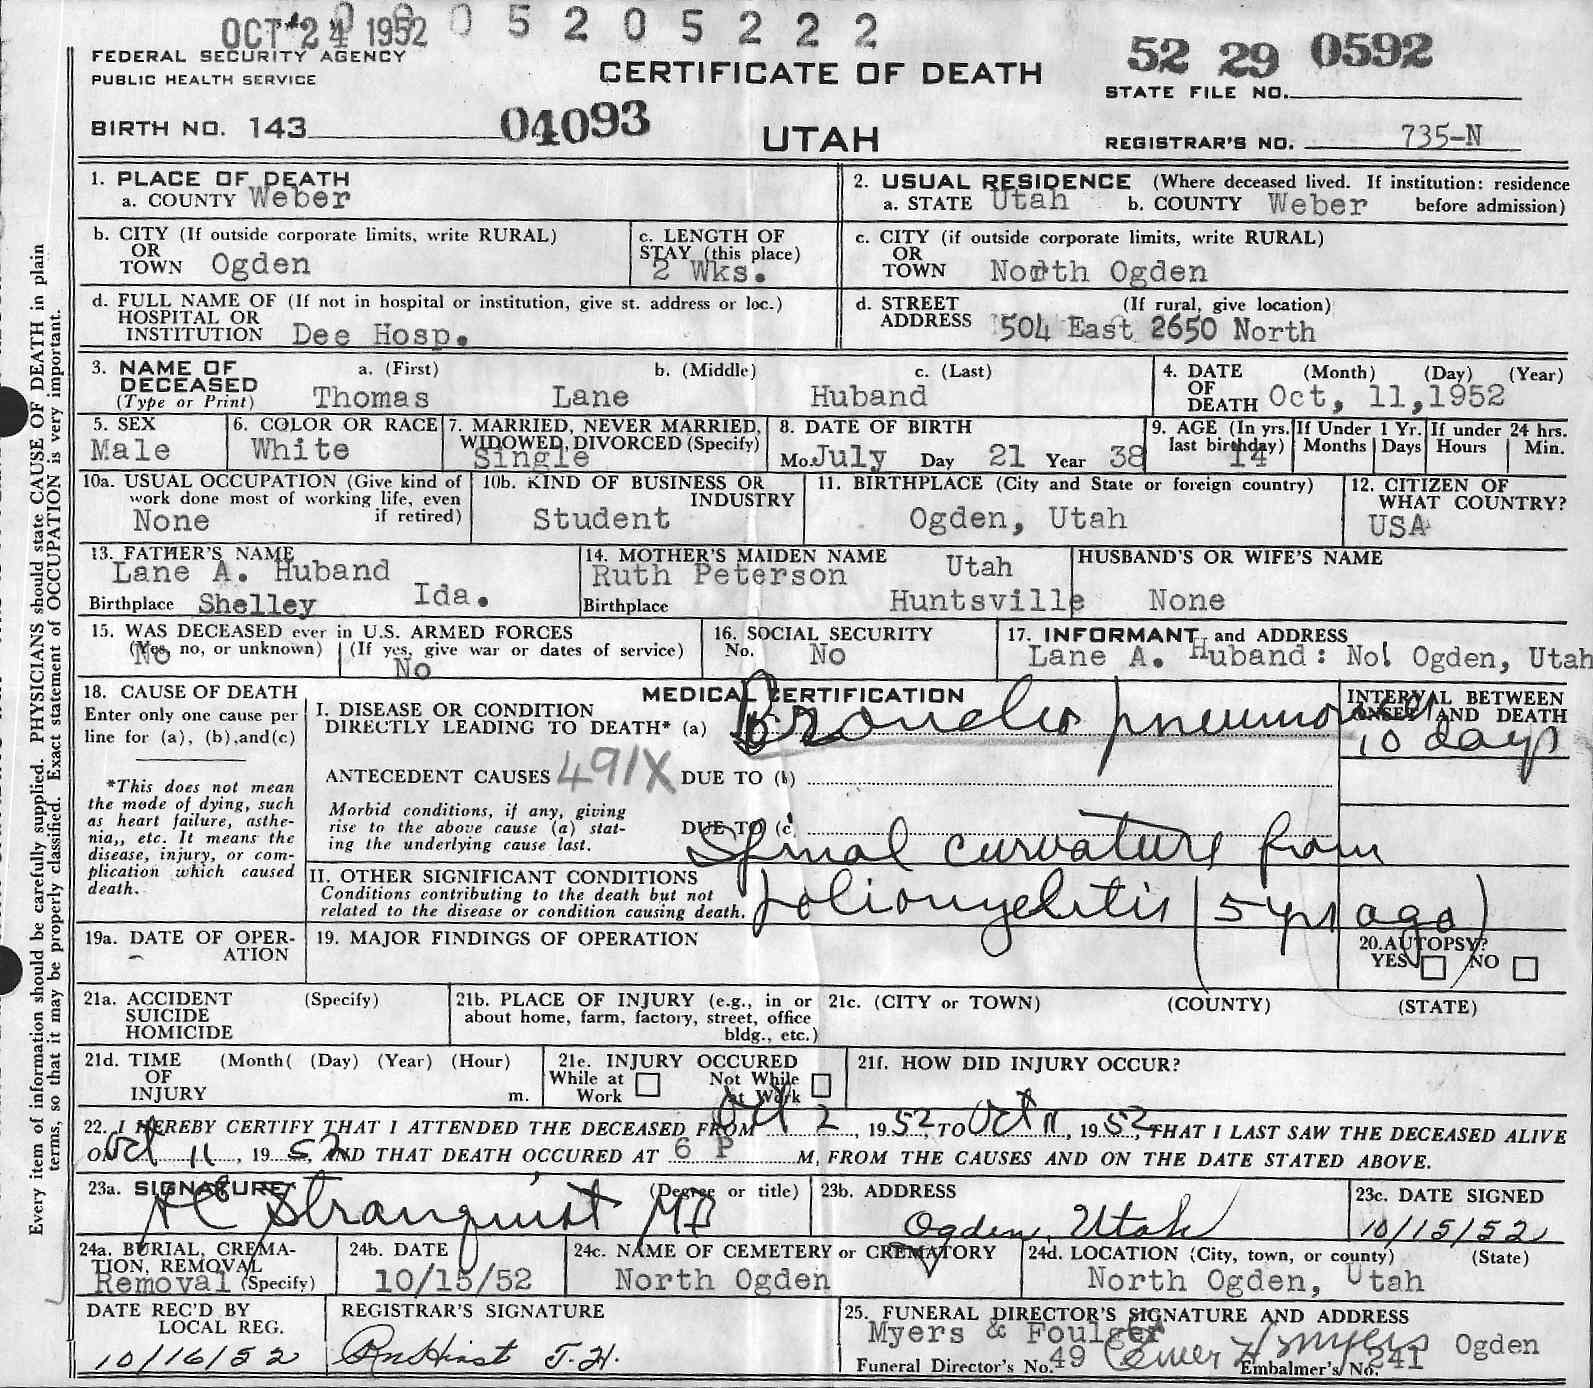 OCT 24 1952 0 0 0 5 2 0 5 2 2 2
FEDERAL SECURITY AGENCY
PUBLIC HEALTH SERVICE
CERTIFICATE OF DEATH
52 29 0592
STATE FILE NO.
BIRTH NO. 143
04093
UTAH
REGISTRAR'S NO. 735-N
Every item of information should be carefully supplied. PHYSICIANS should state CAUSE OF DEATH in plain
terms, so that it may be properly classified. Exact statement of OCCUPATION is very important.
1. PLACE OF DEATH
a. COUNTY Weber
2. USUAL RESIDENCE (Where deceased lived. If institution: residence
a. STATE Utah b. COUNTY Weber before admission)
b. CITY (If outside corporate limits, write RURAL)
OR
TOWN Ogden
c. LENGTH OF
STAY (this place)
2 Wks.
c. CITY (if outside corporate limits, write RURAL)
OR
TOWN North Ogden
d. FULL NAME OF (If not in hospital or institution, give st. address or loc.)
HOSPITAL OR
INSTITUTION Dee Hosp.
d. STREET (If rural, give location)
ADDRESS 504 East 2650 North
3. NAME OF DECEASED
(Type or Print)
a. (First) b. (Middle) c. (Last)
Thomas Lane Huband
4. DATE OF DEATH (Month) (Day) (Year)
Oct, 11,1952
5. SEX
Male
6. COLOR OR RACE
White
7. MARRIED, NEVER MARRIED,
WIDOWED, DIVORCED (Specify)
Single
8. DATE OF BIRTH
Mo. July Day 21 Year 38
9. AGE (In yrs. last birthday)
14
If Under 1 Yr.
Months Days
If under 24 hrs.
Hours Min.
10a. USUAL OCCUPATION (Give kind of
work done most of working life, even
if retired)
None
10b. KIND OF BUSINESS OR
INDUSTRY
Student
11. BIRTHPLACE (City and State or foreign country)
Ogden, Utah
12. CITIZEN OF
WHAT COUNTRY?
USA
13. FATHER'S NAME
Lane A. Huband
Birthplace Shelley Ida.
14. MOTHER'S MAIDEN NAME
Ruth Peterson Utah
Birthplace Huntsville
HUSBAND'S OR WIFE'S NAME
None
15. WAS DECEASED ever in U.S. ARMED FORCES
(Yes, no, or unknown) (If yes, give war or dates of service)
No No
16. SOCIAL SECURITY
No. No
17. INFORMANT and ADDRESS
Lane A. Huband: No. Ogden, Utah
18. CAUSE OF DEATH
Enter only one cause per
line for (a), (b),and(c)
*This does not mean
the mode of dying, such
as heart failure, asthe-
nia,, etc. It means the
disease, injury, or com-
plication which caused
death.
MEDICAL CERTIFICATION
I. DISEASE OR CONDITION
DIRECTLY LEADING TO DEATH* (a) Broncho pneumonia
INTERVAL BETWEEN
ONSET AND DEATH
10 days
ANTECEDENT CAUSES 491X DUE TO (b)
Morbid conditions, if any, giving
rise to the above cause (a) stat-
ing the underlying cause last.
DUE TO (c)
Spinal curvature from
II. OTHER SIGNIFICANT CONDITIONS
Conditions contributing to the death but not
related to the disease or condition causing death.
Poliomyelitis (5 yrs ago)
19a. DATE OF OPER-
ATION
19. MAJOR FINDINGS OF OPERATION
20. AUTOPSY?
YES NO
21a. ACCIDENT (Specify)
SUICIDE
HOMICIDE
21b. PLACE OF INJURY (e.g., in or
about home, farm, factory, street, office
bldg., etc.)
21c. (CITY or TOWN) (COUNTY) (STATE)
21d. TIME (Month( (Day) (Year) (Hour)
OF
INJURY m.
21e. INJURY OCCURED
While at Work Not While at Work
21f. HOW DID INJURY OCCUR?
22. I HEREBY CERTIFY THAT I ATTENDED THE DECEASED FROM Oct 2, 1952, TO Oct 11, 1952, THAT I LAST SAW THE DECEASED ALIVE
ON Oct 11, 1952 AND THAT DEATH OCCURED AT 6 P M, FROM THE CAUSES AND ON THE DATE STATED ABOVE.
23a. SIGNATURE (Degree or title)
HC Stranquist MD
23b. ADDRESS
Ogden, Utah
23c. DATE SIGNED
10/15/52
24a. BURIAL, CREMA-
TION, REMOVAL
Removal (Specify)
24b. DATE
10/15/52
24c. NAME OF CEMETERY or CREMATORY
North Ogden
24d. LOCATION (City, town, or county) (State)
North Ogden, Utah
DATE REC'D BY
LOCAL REG.
10/16/52
REGISTRAR'S SIGNATURE
25. FUNERAL DIRECTOR'S SIGNATURE AND ADDRESS
Myers & Foulger Ogden
Funeral Director's No. 49 Elmer H Myers Embalmer's No. 241